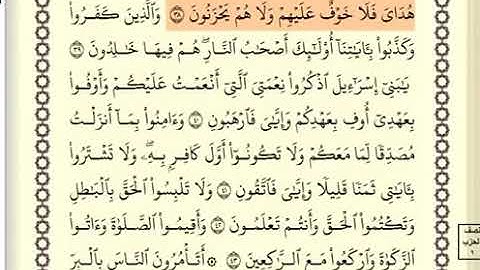 هُدَايَ فَلَا خَوْفٌ عَلَيْهِمْ وَلَا هُمْ يَحْزَنُونَ ٣٨ وَالَّذِينَ كَفَرُوا۟
وَكَذَّبُوا۟ بِـَٔايَـٰتِنَآ أُو۟لَـٰٓئِكَ أَصْحَـٰبُ النَّارِ ۖ هُمْ فِيهَا خَـٰلِدُونَ ٣٩
يَـٰبَنِىٓ إِسْرَٰٓءِيلَ اذْكُرُوا۟ نِعْمَتِىَ الَّتِىٓ أَنْعَمْتُ عَلَيْكُمْ وَأَوْفُوا۟
بِعَهْدِىٓ أُوفِ بِعَهْدِكُمْ وَإِيَّـٰىَ فَارْهَبُونِ ٤٠ وَءَامِنُوا۟ بِمَآ أَنزَلْتُ
مُصَدِّقًا لِّمَا مَعَكُمْ وَلَا تَكُونُوٓا۟ أَوَّلَ كَافِرٍۭ بِهِۦ ۖ وَلَا تَشْتَرُوا۟
بِـَٔايَـٰتِى ثَمَنًا قَلِيلًا وَإِيَّـٰىَ فَاتَّقُونِ ٤١ وَلَا تَلْبِسُوا۟ الْحَقَّ بِالْبَـٰطِلِ
وَتَكْتُمُوا۟ الْحَقَّ وَأَنتُمْ تَعْلَمُونَ ٤٢ وَأَقِيمُوا۟ الصَّلَوٰةَ وَءَاتُوا۟
الزَّكَوٰةَ وَارْكَعُوا۟ مَعَ الرَّٰكِعِينَ ٤٣ أَتَأْمُرُونَ النَّاسَ بِالْبِرِّ